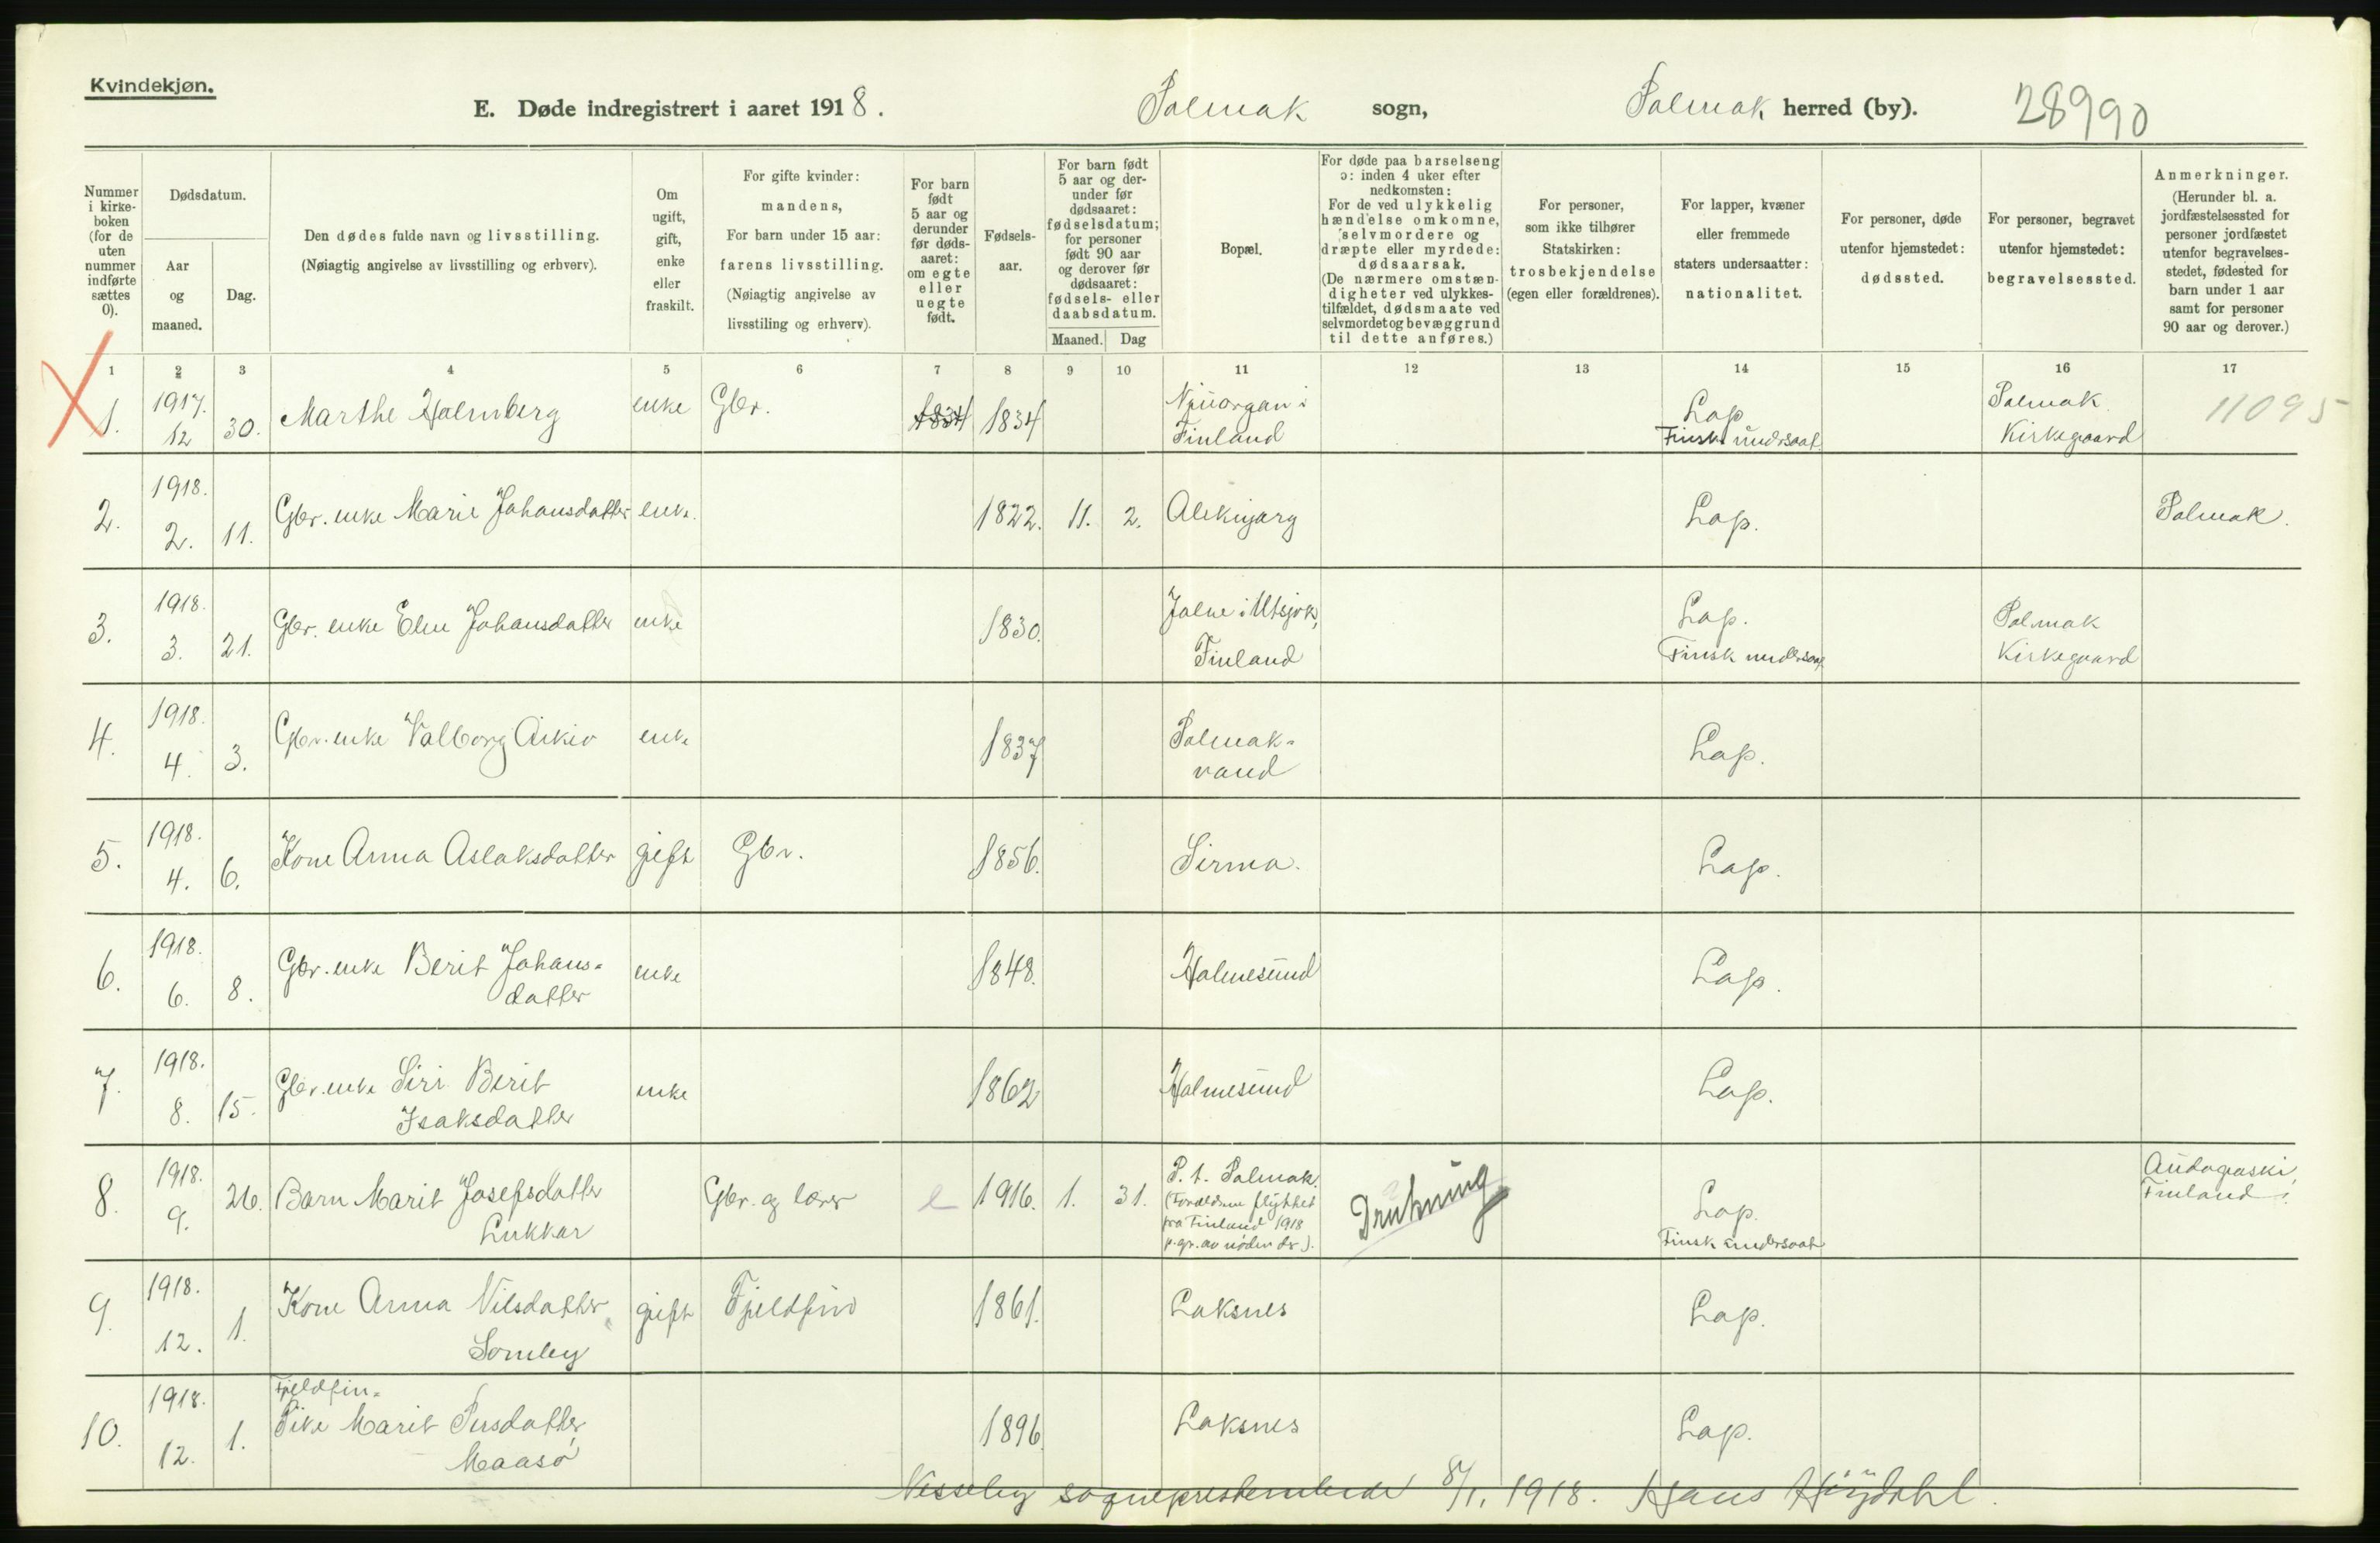 Kvindekjøn.
E. Døde indregistrert i aaret 1918. Polmak sogn, Polmak herred (by). 28990
Nummer i kirke-boken (for de uten nummer indførte sættes 0).
Dødsdatum.
Aar og maaned.
Dag.
Den dødes fulde navn og livsstilling.
(Nøiagtig angivelse av livsstilling og erhverv).
Om ugift, gift, enke eller fraskilt.
For gifte kvinder: mandens,
For barn under 15 aar: farens livsstilling.
(Nøiagtig angivelse av livsstiling og erhverv).
For barn født 5 aar og derunder før døds-aaret: om egte eller uegte født.
Fødsels-aar.
For barn født 5 aar og der-under før dødsaaret: fødselsdatum; for personer født 90 aar og derover før dødsaaret: fødsels- eller daabsdatum.
Maaned. Dag
Bopæl.
For døde paa barselseng ɔ: inden 4 uker efter nedkomsten:
For de ved ulykkelig hændelse omkomne, selvmordere og dræpte eller myrdede: dødsaarsak.
(De nærmere omstæn-digheter ved ulykkes-tilfældet, dødsmaate ved selvmordet og bevæggrund til dette anføres.)
For personer, som ikke tilhører Statskirken: trosbekjendelse (egen eller forældrenes).
For lapper, kvæner eller fremmede staters undersaatter: nationalitet.
For personer, døde utenfor hjemstedet: dødssted.
For personer, begravet utenfor hjemstedet: begravelsessted.
Anmerkninger.
(Herunder bl. a. jordfæstelsessted for personer jordfæstet utenfor begravelses-stedet, fødested for barn under 1 aar samt for personer 90 aar og derover.)
1 2 3 4 5 6 7 8 9 10 11 12 13 14 15 16 17
1. 1917. 12 30. Marthe Holmberg enke Gbr. 1834 1834 Njuorgan i Finland Lap Finsk undersaat. Polmak Kirkegaard 11095
2. 1918. 2. 11. Gbr. enke Marie Johansdatter enke. 1822. 11. 2. Aleknjarg Lap. Polmak.
3. 1918. 3. 21. Gbr. enke Elen Johansdatter enke 1830. Jalve i Utsjok, Finland Lap. Finsk undersaat Polmak Kirkegaard
4. 1918. 4. 3. Gbr. enke Valborg Aikio enke 1837 Polmak-vand Lap.
5. 1918. 4. 6. Kone Anna Aslaksdatter gift Gbr. 1856. Sirma. Lap.
6. 1918. 6. 8. Gbr. enke Berit Johans-datter enke 1848. Holmesund Lap.
7. 1918. 8. 15. Gbr. enke Siri Berit Isaksdatter enke 1862 Holmesund Lap.
8. 1918. 9. 26. Barn Marit Josefsdatter Lukkar Gbr. og lærer e 1916. 1. 31. P. t. Polmak. (Forældrene flygtet fra Finland 1918 p. gr. av nøden der). Drukning Lap. Finsk undersaat Finland.
9. 1918. 12. 1. Kone Anna Nilsdatter Somby gift Fjeldfin 1861. Laksnes Lap.
10. 1918. 12. 1. Fjeldfin-Pike Marit Persdatter Maasø 1896. Laksnes Lap.
Nesseby sogneprestembede 8/1. 1918. Hans Høydahl.